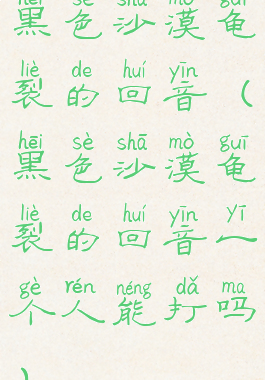 hēi sè shā mò guī
黑色沙漠龟
liè de huí yīn
裂的回音（
hēi sè shā mò guī
黑色沙漠龟
liè de huí yīn yī
裂的回音一
gè rén néng dǎ ma
个人能打吗
）